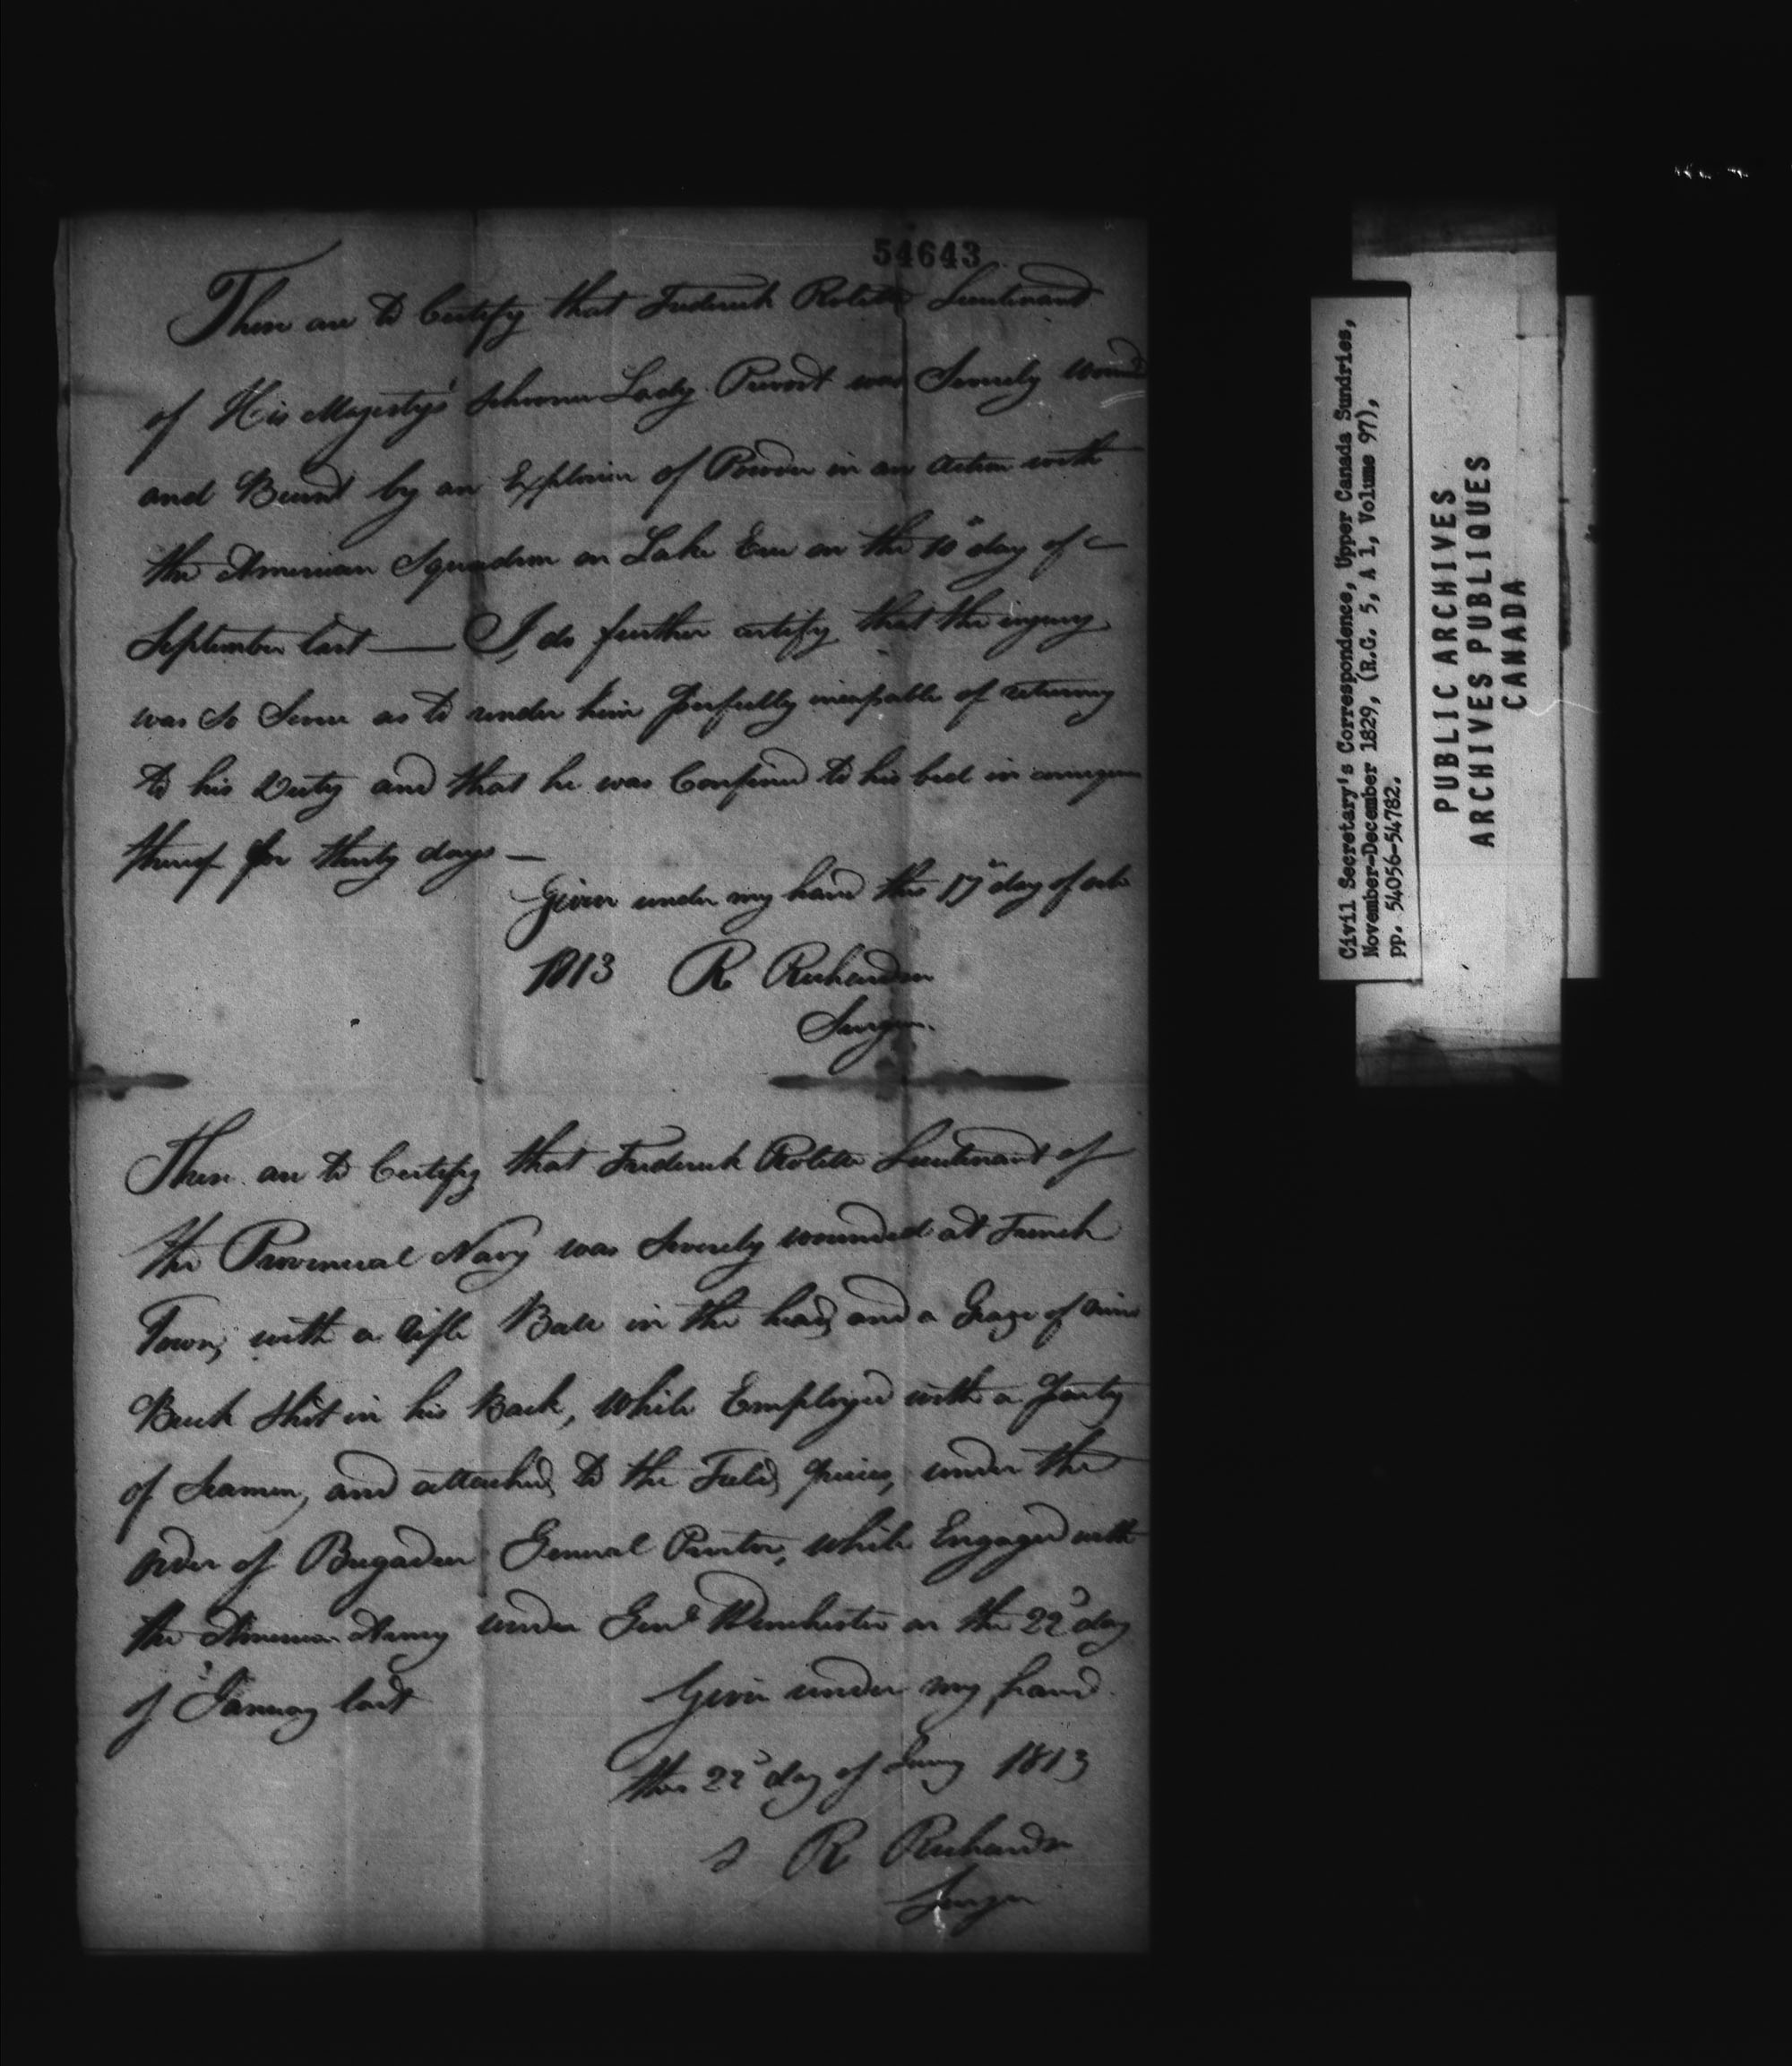 54643
These are to Certify that Frederick Rolette Lieutenant
of His Majesty's Schooner Lady Prevost was Severely wound
and Burnt by an Explosion of Powder in an action with
the American Squadron on Lake Erie on the 10th day of
September last — I, do further certify that the injury
was So Severe as to render him perfectly incapable of returning
to his Duty and that he was Confined to his bed in
thereof for thirty days —
Given under my hand this 17th day of octr
1813 R Richardson
Surgeon.
These are to Certify that Frederick Rolette Lieutenant of
the Provincial Navy was Severely wounded at French
Town, with a rifle Ball in the head, and a Graze of
Buck Shot in his Back, While Employed with a party
of Seamen, and attached, to the Field, pieces, under the
order of Brigadier General Proctor, while Engaged with
the American Army under Genl Winchester on the 22d day
of January last
Given under my hand
this 22d day of 1813
R Richardson
Surgeon
Civil Secretary's Correspondence, Upper Canada Sundries,
November-December 1829, (R.G. 5, A 1, Volume 97),
pp. 54056-54782.
PUBLIC ARCHIVES
ARCHIVES PUBLIQUES
CANADA